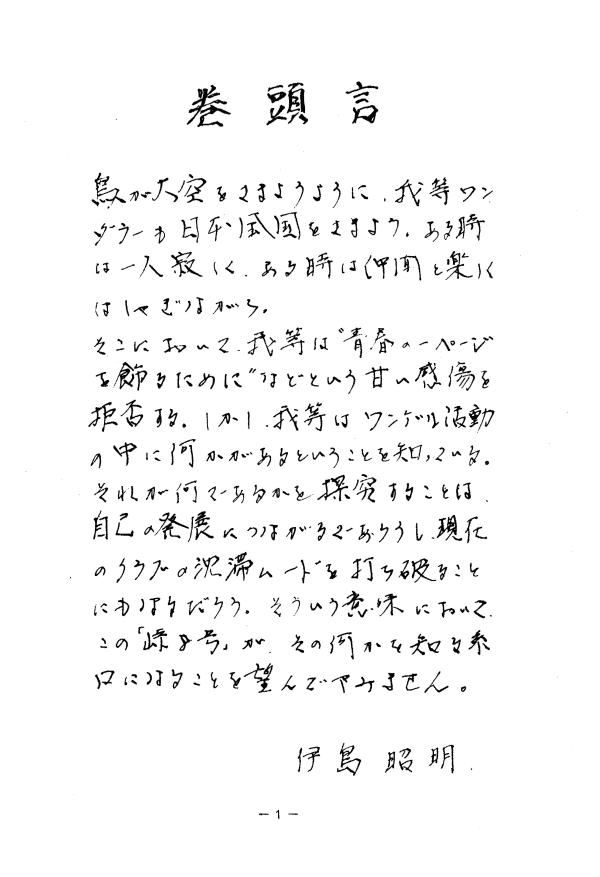 巻頭言
鳥が大空をさまようように、我等ワン
ダラーも日本全国をさまよう。ある時
は一人寂しく、ある時は仲間と楽しく
はしゃぎながら。
そこにおいて、我等は"青春の一ページ
を飾るために"などという甘い感傷を
拒否する。しかし、我等はワンゲル活動
の中に何かがあるということを知っている。
それが何であるかを探究することは、
自己の発展につながるであろうし、現在
のクラブの沈滞ムードを打ち破ること
にもなるだろう。そういう意味において、
この「峠8号」が、その何かを知る糸
口になることを望んでやみません。
伊島昭明.
－1－